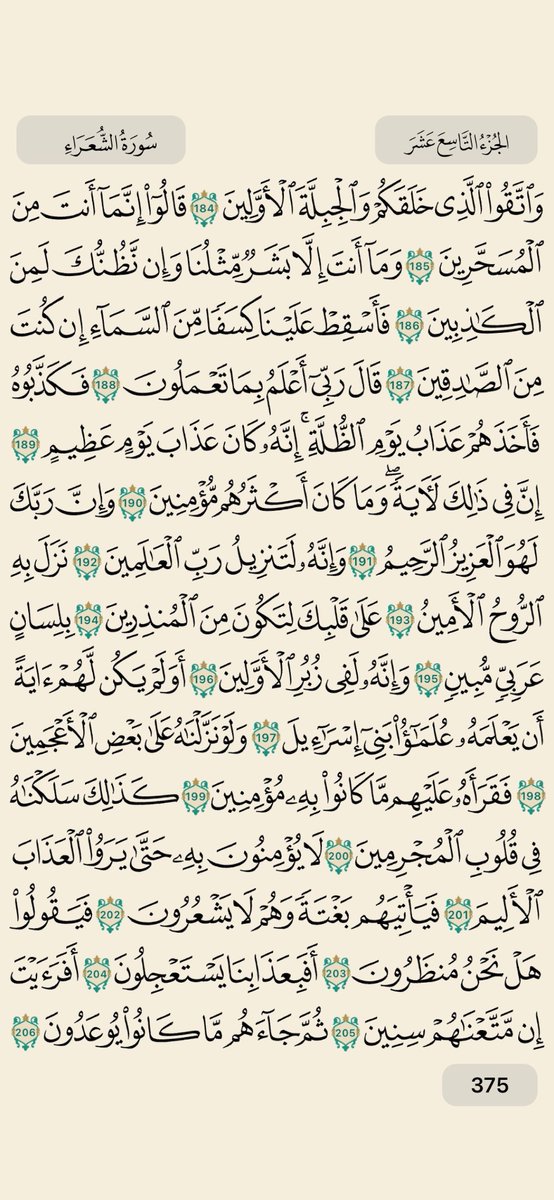 الجُزْءُ التَّاسِعَ عَشَرَ
سُورَةُ الشُّعَرَاءِ
وَٱتَّقُوا۟ ٱلَّذِى خَلَقَكُمْ وَٱلْجِبِلَّةَ ٱلْأَوَّلِينَ 184 قَالُوٓا۟ إِنَّمَآ أَنتَ مِنَ
ٱلْمُسَحَّرِينَ 185 وَمَآ أَنتَ إِلَّا بَشَرٌ مِّثْلُنَا وَإِن نَّظُنُّكَ لَمِنَ
ٱلْكَـٰذِبِينَ 186 فَأَسْقِطْ عَلَيْنَا كِسَفًا مِّنَ ٱلسَّمَآءِ إِن كُنتَ
مِنَ ٱلصَّـٰدِقِينَ 187 قَالَ رَبِّىٓ أَعْلَمُ بِمَا تَعْمَلُونَ 188 فَكَذَّبُوهُ
فَأَخَذَهُمْ عَذَابُ يَوْمِ ٱلظُّلَّةِ ۚ إِنَّهُۥ كَانَ عَذَابَ يَوْمٍ عَظِيمٍ 189
إِنَّ فِى ذَٰلِكَ لَـَٔايَةً ۖ وَمَا كَانَ أَكْثَرُهُم مُّؤْمِنِينَ 190 وَإِنَّ رَبَّكَ
لَهُوَ ٱلْعَزِيزُ ٱلرَّحِيمُ 191 وَإِنَّهُۥ لَتَنزِيلُ رَبِّ ٱلْعَـٰلَمِينَ 192 نَزَلَ بِهِ
ٱلرُّوحُ ٱلْأَمِينُ 193 عَلَىٰ قَلْبِكَ لِتَكُونَ مِنَ ٱلْمُنذِرِينَ 194 بِلِسَانٍ
عَرَبِىٍّ مُّبِينٍ 195 وَإِنَّهُۥ لَفِى زُبُرِ ٱلْأَوَّلِينَ 196 أَوَلَمْ يَكُن لَّهُمْ ءَايَةً
أَن يَعْلَمَهُۥ عُلَمَـٰٓؤُا۟ بَنِىٓ إِسْرَٰٓءِيلَ 197 وَلَوْ نَزَّلْنَـٰهُ عَلَىٰ بَعْضِ ٱلْأَعْجَمِينَ
198 فَقَرَأَهُۥ عَلَيْهِم مَّا كَانُوا۟ بِهِۦ مُؤْمِنِينَ 199 كَذَٰلِكَ سَلَكْنَـٰهُ
فِى قُلُوبِ ٱلْمُجْرِمِينَ 200 لَا يُؤْمِنُونَ بِهِۦ حَتَّىٰ يَرَوُا۟ ٱلْعَذَابَ
ٱلْأَلِيمَ 201 فَيَأْتِيَهُم بَغْتَةً وَهُمْ لَا يَشْعُرُونَ 202 فَيَقُولُوا۟
هَلْ نَحْنُ مُنظَرُونَ 203 أَفَبِعَذَابِنَا يَسْتَعْجِلُونَ 204 أَفَرَءَيْتَ
إِن مَّتَّعْنَـٰهُمْ سِنِينَ 205 ثُمَّ جَآءَهُم مَّا كَانُوا۟ يُوعَدُونَ 206
375